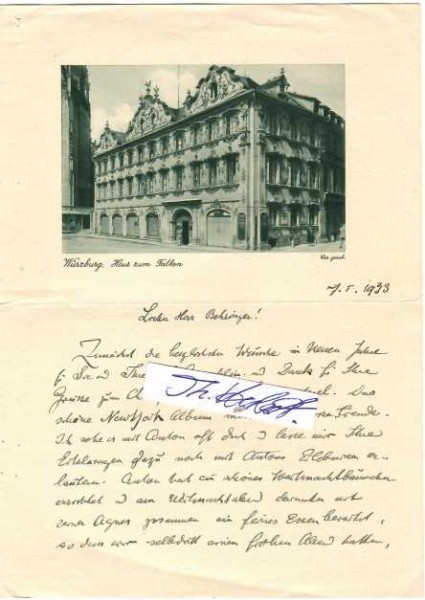 Würzburg, Haus zum Falken
Ges. gesch.
7. I. 1933
Lieber Herr Behringer!
Zunächst die herzlichsten Wünsche im Neuen Jahre
f. Sie und Ihre und Dank f. Ihre
Grüsse zum Das
schöne New York Album Freude.
Ich sehe es mit Anton oft durch u lasse mir Ihre
Erklärungen dazu noch mit Antons Erlebnissen er-
läutern. Anton hat ein schönes Weihnachtsbäumchen
errichtet u am Weihnachtsabend darunter mit
seiner Agnes zusammen ein feines Essen bereitet,
so dass wir selbdritt einen frohen Abend hatten,